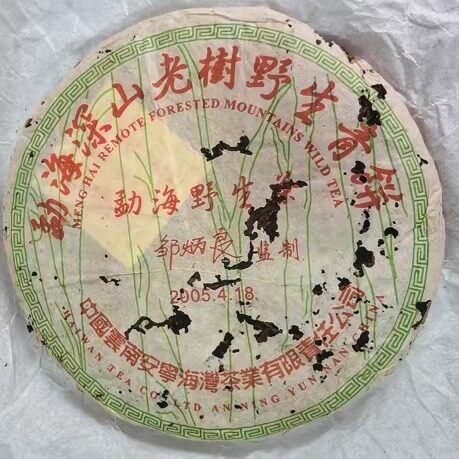 勐海深山老樹野生青餅
MENG HAI REMOTE FORESTED MOUNTAINS WILD TEA
勐海野生茶
邹炳良 监制
2005.4.18
中國雲南安寧海灣茶業有限責任公司
HAIWAN TEA CO. LTD AN NING YUN NAN CHINA